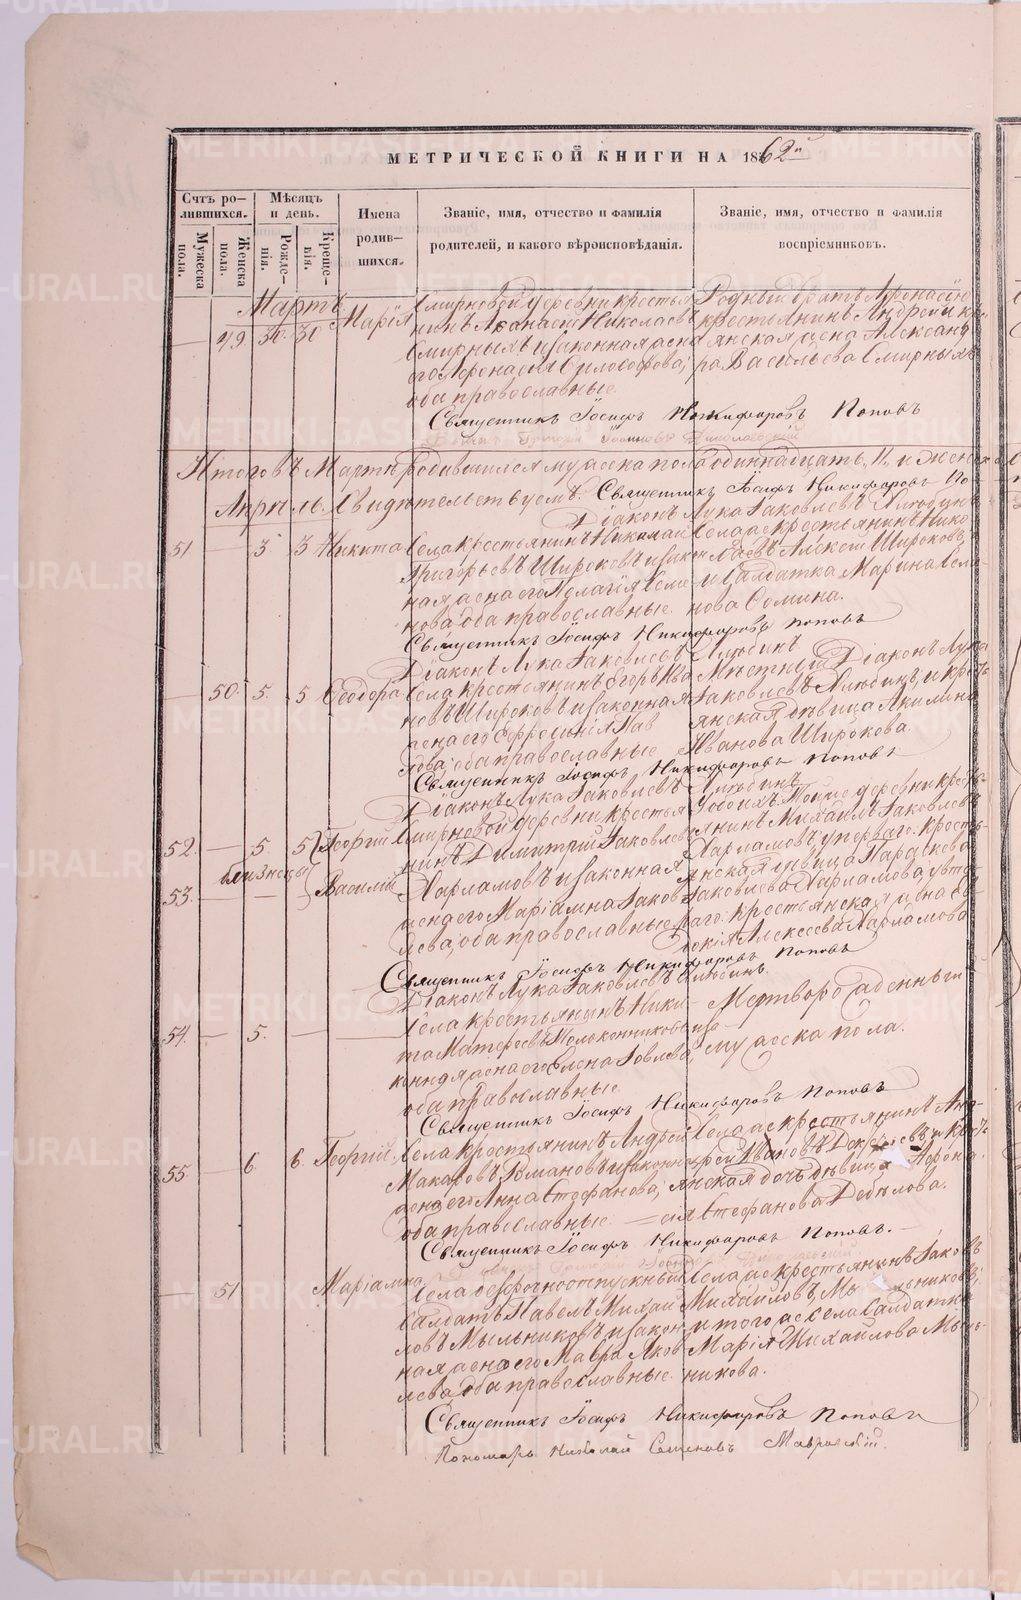 МЕТРИЧЕСКОЙ КНИГИ НА 1862й
Счтъ ро-
лившихся.
Мѣсяцъ
и день.
Имена
родив-
шихся.
Званіе, имя, отчество и фамилія
родителей, и какого вѣроисповѣданія.
Званіе, имя, отчество и фамилія
воспріемниковъ.
Мужеска
пола.
Женска
пола.
Рожде-
нія.
Креще-
нія.
Мартъ
49 30. 30 Марія
Смирновой деревни крестья
нинъ Афанасій Николаевъ
Смирныхъ и законная жена
его Афонасія Философова;
оба православные
Родный братъ Афонасію
крестьянинъ Андрей и кре
янская жена Александ
ра Васильева Смирныхъ
Священникъ Іосифъ Никифоровъ Поповъ
Итого въ Мартѣ родившихся мужеска пола одиннадцать, 11, и женска
Апрѣль. Свидѣтельствуемъ: Священникъ Іосифъ Никифоровъ По
Діаконъ Лука Іаковлевъ Злюбинъ
51 — 3 3 Никита
Села крестьянинъ Николай
Григорьевъ Широковъ и закон
ная жена его Пелагія Семе
нова оба православные
Села же крестьянинъ Нико
лаевъ Алексій Широковъ
и Салдатка Марина Семе-
нова Сомина.
Священникъ Іосифъ Никифоровъ Поповъ
Діаконъ Лука Іаковлевъ Злюбинъ
— 50. 5. 5 Ѳеодора
Села крестьянинъ Егоръ Ива
новъ Широковъ и законная
жена его Ефросинія Пав
лова; оба православные
Мѣстный Діаконъ Лука
Іаковлевъ Злюбинъ и кресть
янская дѣвица Акилина
Иванова Широкова.
Священникъ Іосифъ Никифоровъ Поповъ
Діаконъ Лука Іаковлевъ Злюбинъ
52. — 5. 5 Георгій
близнецы
53. — Василій
Смирновой деревни крестья
нинъ Димитрій Іаковлевъ
Харламовъ и законная
жена его Маріамна Іаков
лева; оба православные
У обоихъ: Той же деревни кресть-
янинъ Михаилъ Іаковлевъ
Харламовъ, у перваго: кресть-
янская дѣвица Параскева
Іаковлева Харламова, у вто
раго: крестьянская жена Ев
докія Алексеева Харламова
Священникъ Іосифъ Никифоровъ Поповъ
Діаконъ Лука Іаковлевъ Злюбинъ.
54. — 5. —
Села крестьянинъ Ники-
та Матфеевъ и за
конная жена его Елена Іовлева;
оба православные
Мертворожденный
мужеска пола.
Священникъ Іосифъ Никифоровъ Поповъ
55. — 6. 6. Георгій.
Села крестьянинъ Андрей
Макаровъ и законная
жена его Анна Стефанова;
оба православные.
Села же крестьянинъ Анд
рей Ивановъ и крест
янская дочь дѣвица Афона-
сія Стефанова Дебелова.
Священникъ Іосифъ Никифоровъ Поповъ.
— 51 Маріамна
Села безсрочноотпускный
Салдатъ Павелъ Михай
ловъ Мыльниковъ и закон
ная жена его Мавра Яков
лева, оба православные
Села же крестьянинъ Іаковъ
Михайловъ Мыльниковъ;
и того же села Салдатка
Марія Михайлова Мыль-
никова.
Священникъ Іосифъ Никифоровъ Поповъ
Пономарь Николай Семеновъ
METRIKI.GASO-URAL.RU